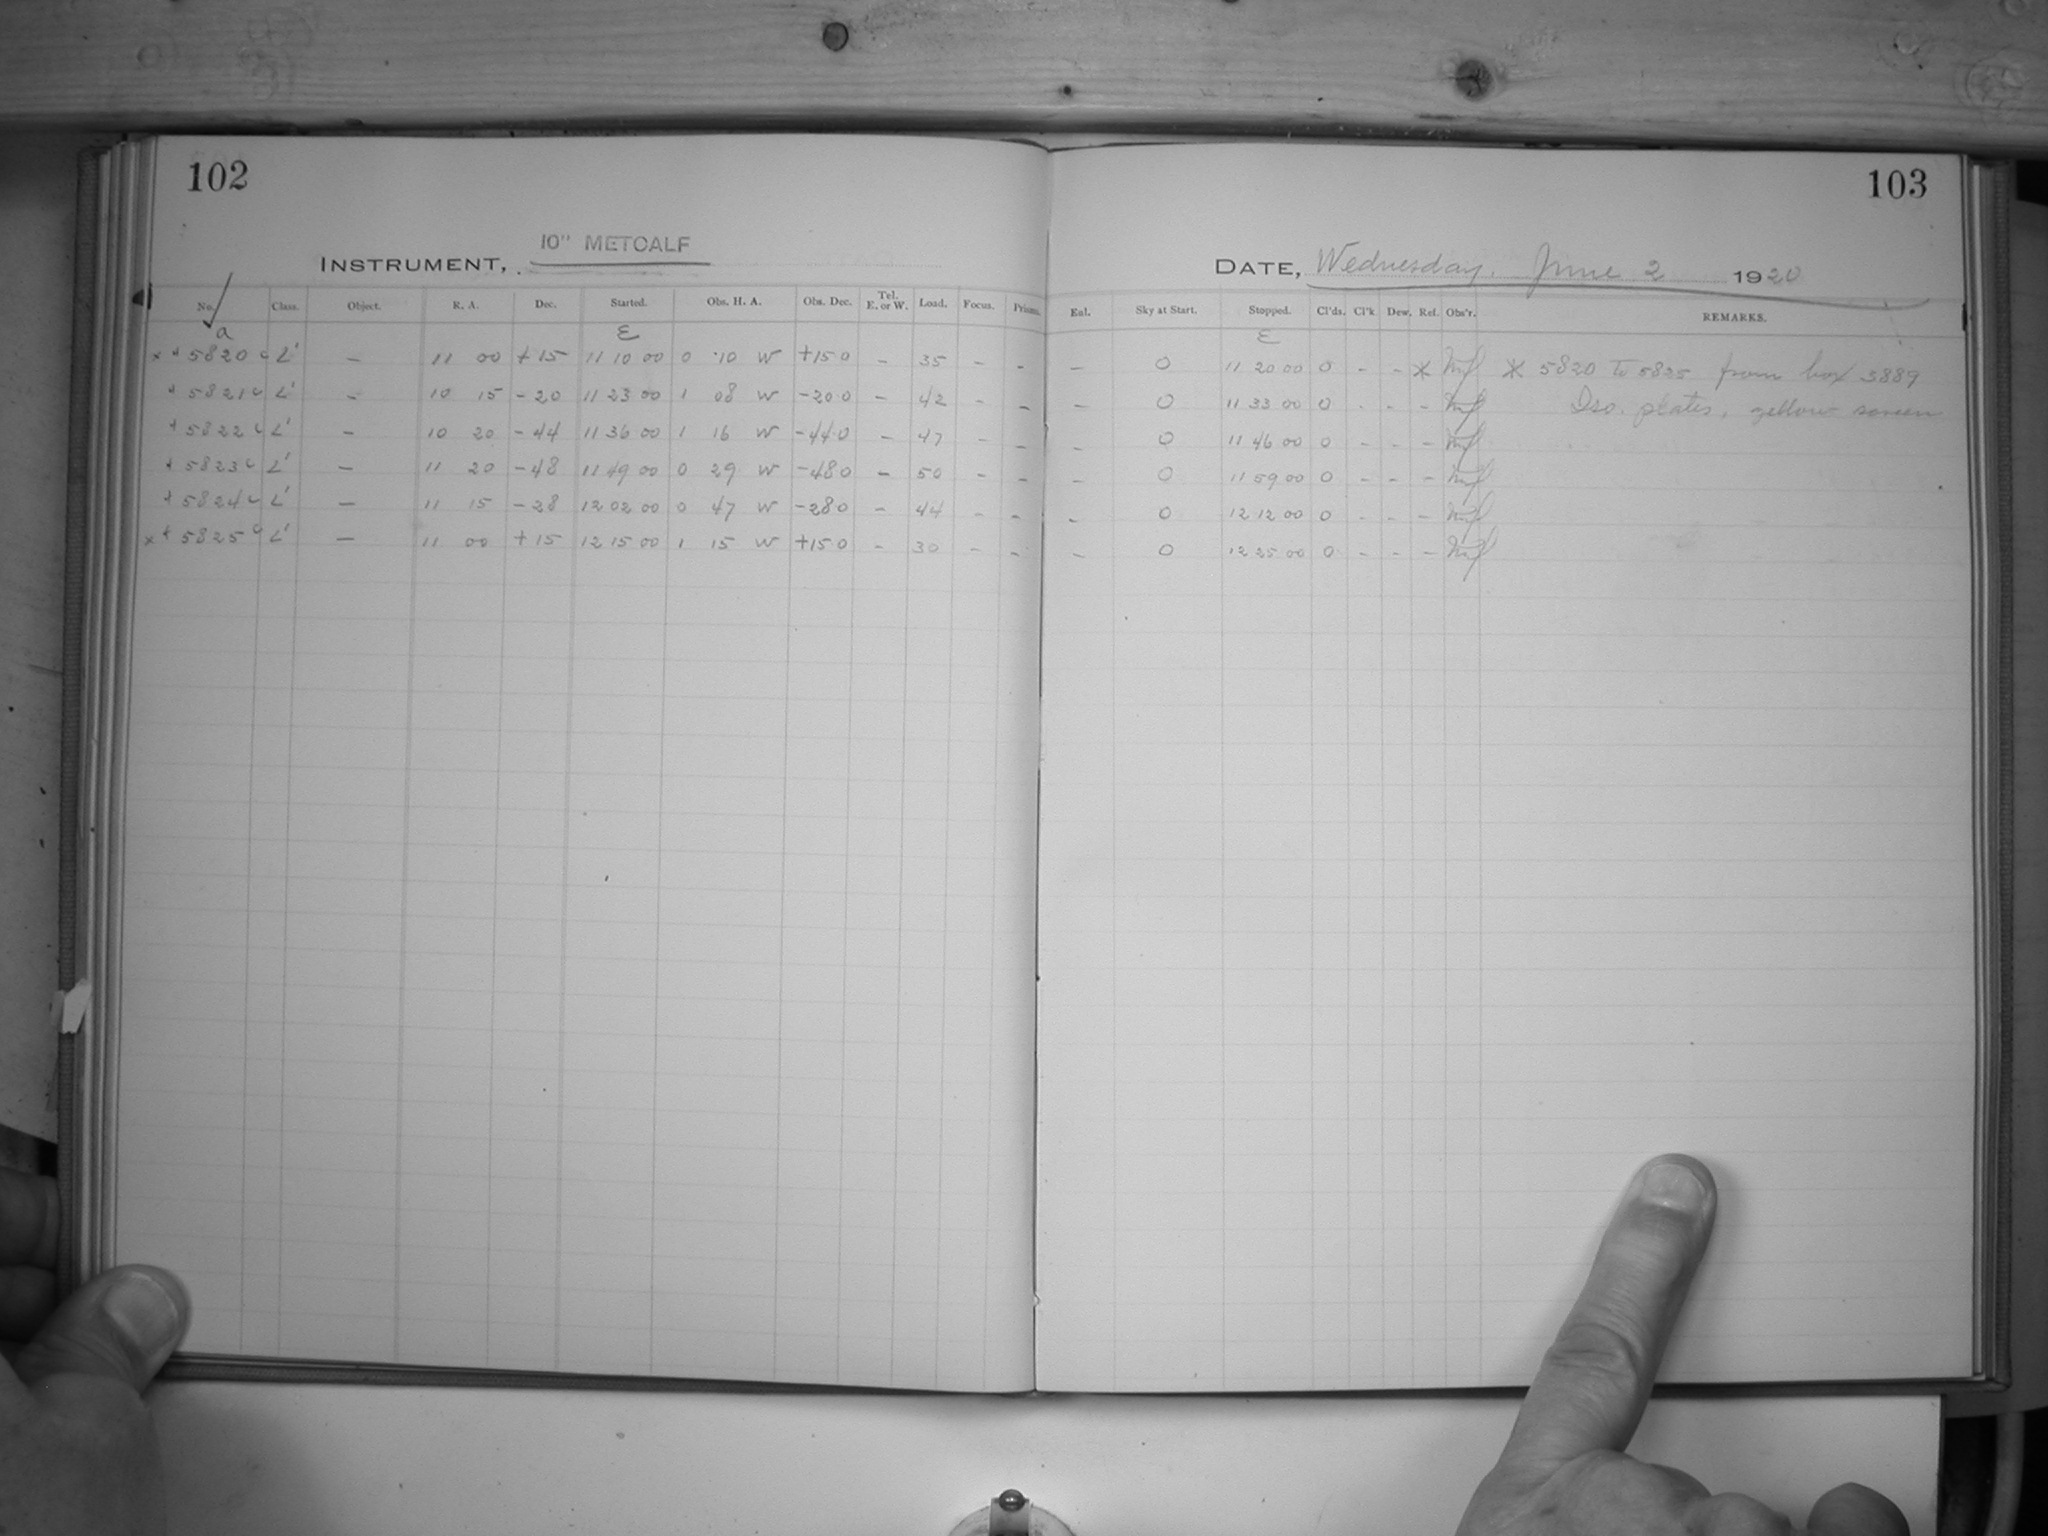 102
103
10" METCALF
INSTRUMENT,
DATE, Wednesday, June 2 1920
No. Class. Object. R. A. Dec. Started. Obs. H. A. Obs. Dec. Tel. E. or W. Load. Focus. Prisms. Eul. Sky at Start. Stopped. Cl'ds. Cl'k Dew. Ref. Obs'r. REMARKS.
a Ɛ Ɛ
x 5820 L' – 11 00 +15 11 10 00 0 10 W +15 0 – 35 – – – 0 11 20 00 0 - - * * 5820 to 5825 from box 3889
5821 L' – 10 15 -20 11 23 00 1 08 W -20 0 – 42 – – – 0 11 33 00 0 - - - Iso. plates, yellow screen
5822 L' – 10 20 -44 11 36 00 1 16 W -44 0 – 47 – – – 0 11 46 00 0 - - -
5823 L' – 11 20 -48 11 49 00 0 29 W -48 0 – 50 – – – 0 11 59 00 0 - - -
5824 L' – 11 15 -28 12 02 00 0 47 W -28 0 – 44 – – – 0 12 12 00 0 - - -
x 5825 L' – 11 00 +15 12 15 00 1 15 W +15 0 – 30 – – – 0 12 25 00 0 - - -